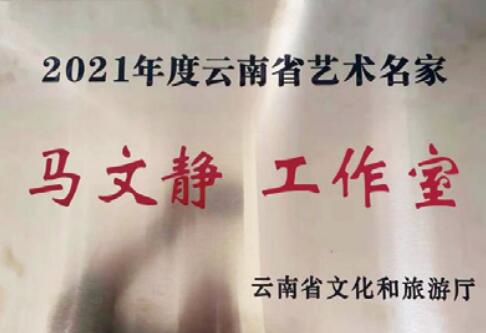 2021年度云南省艺术名家
马文静 工作室
云南省文化和旅游厅